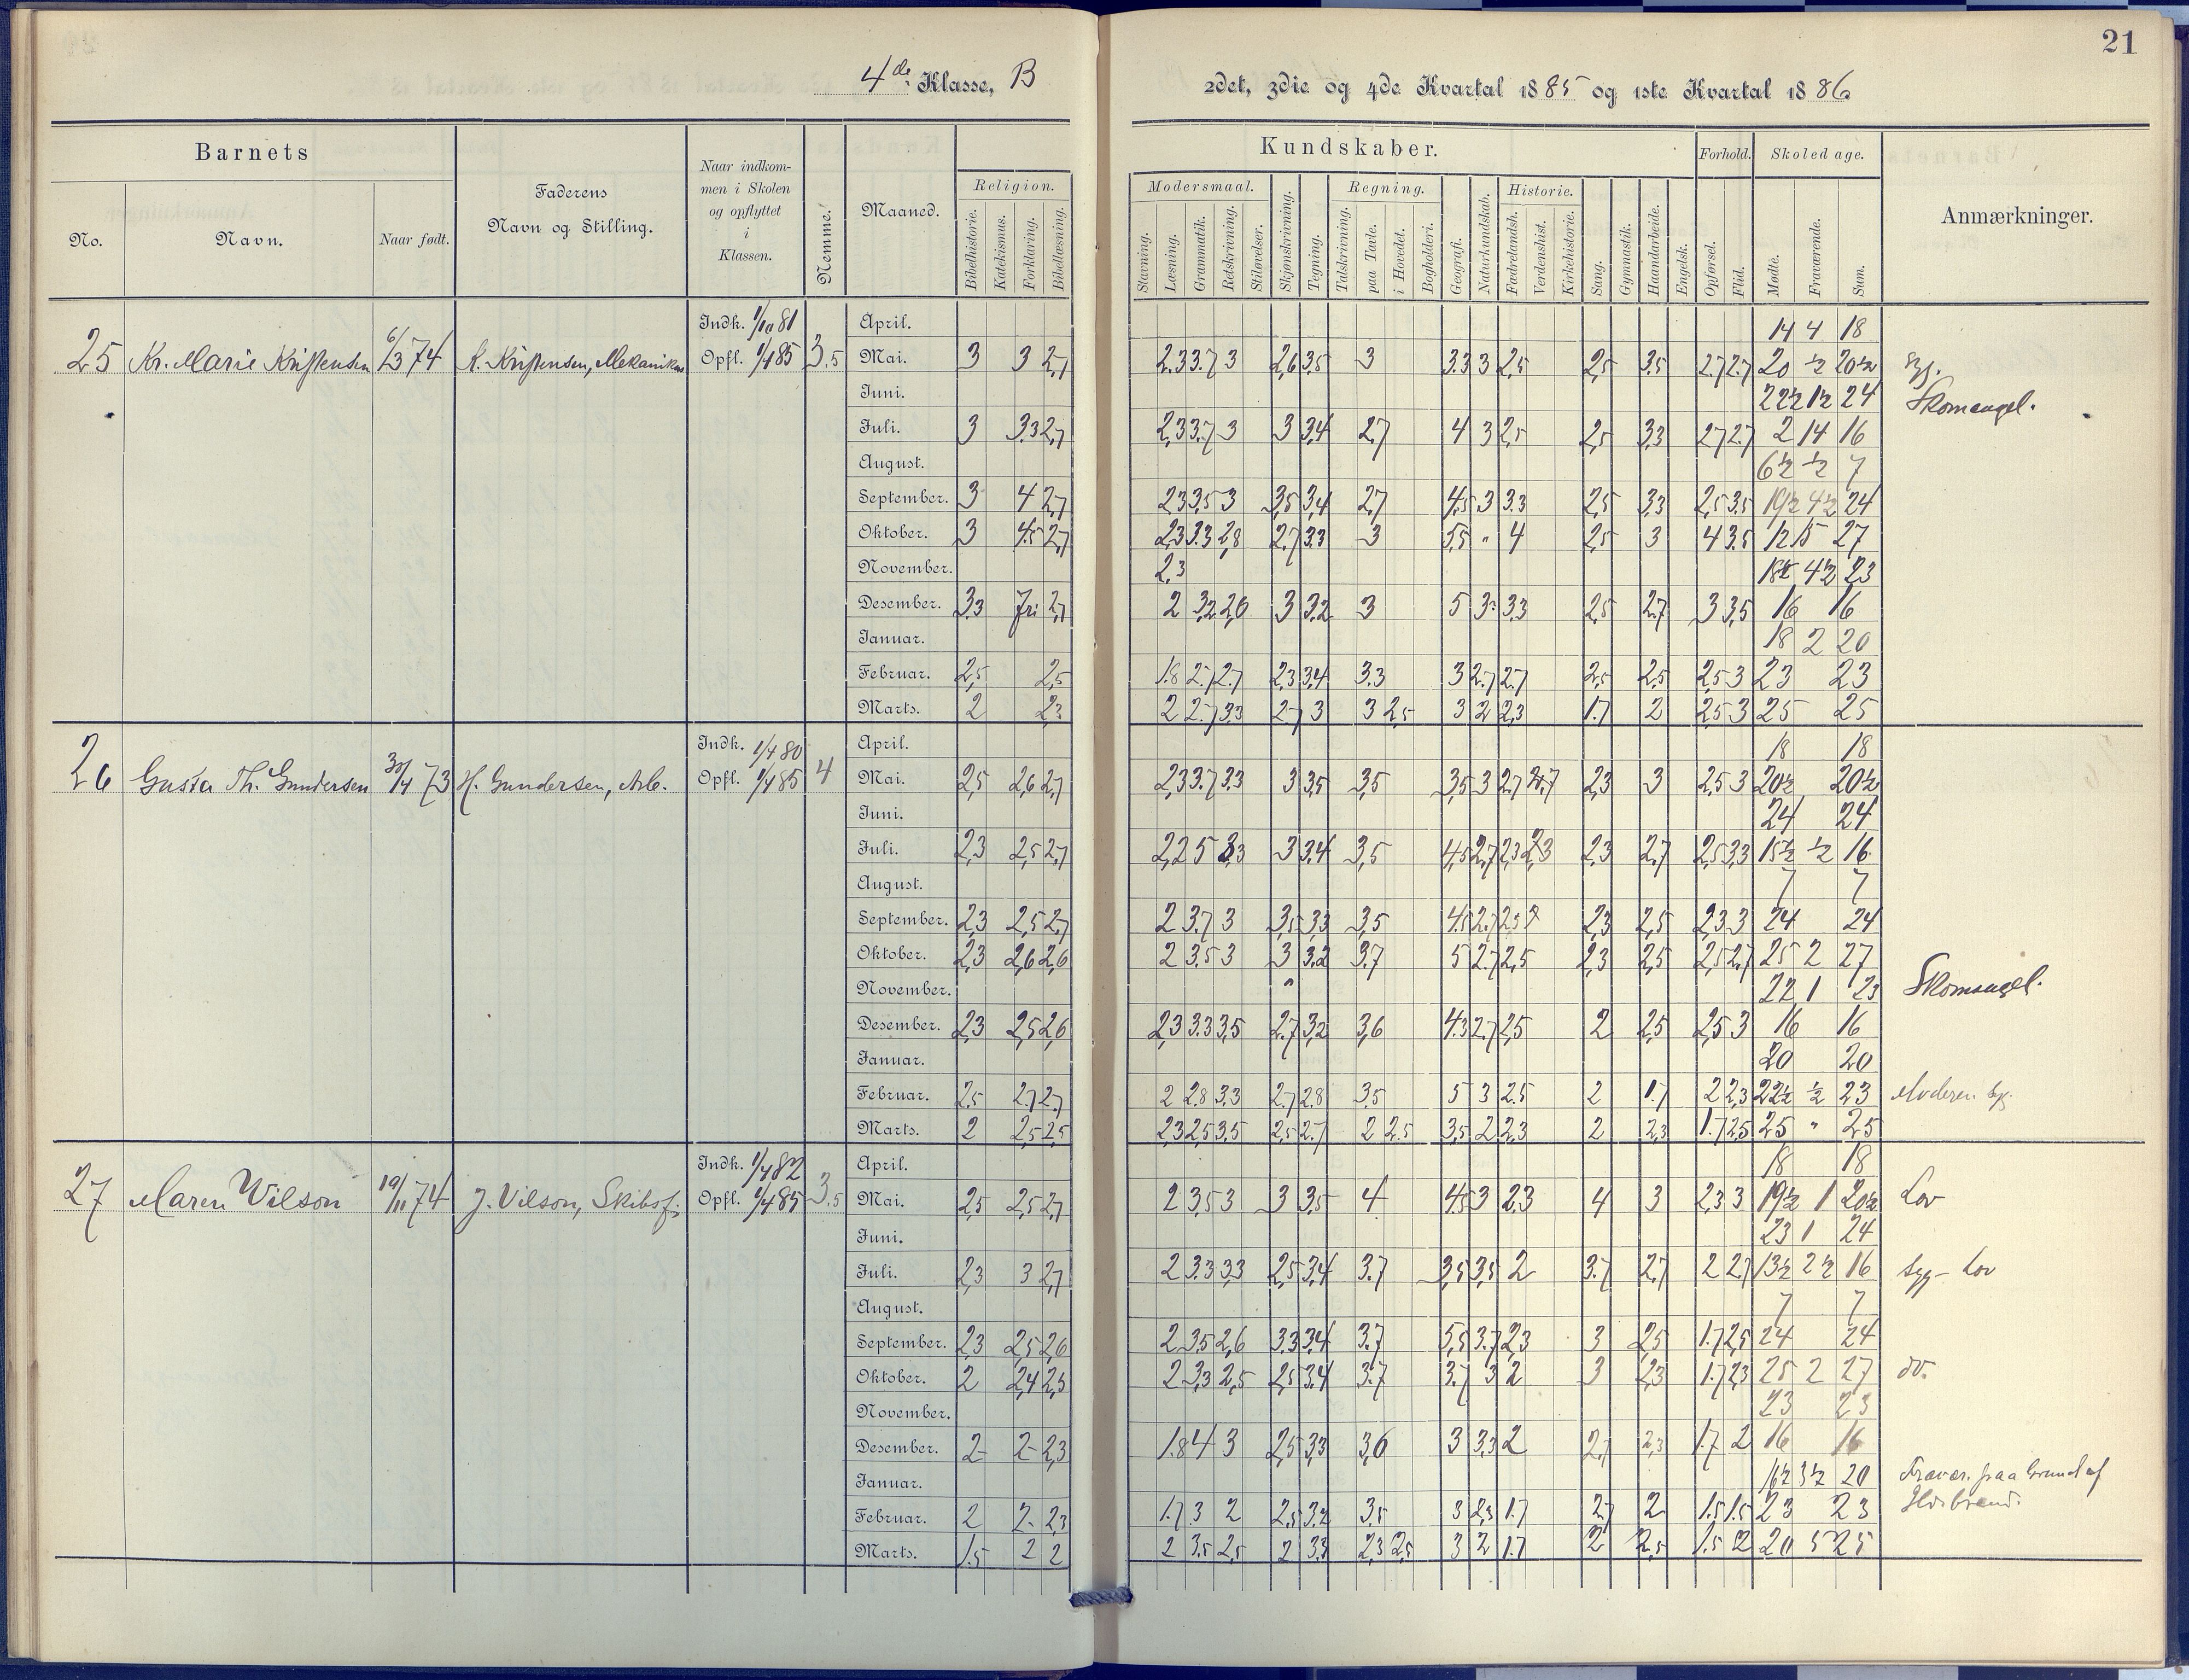 21
4de Klasse, B
2det, 3die og 4de Kvartal 1885 og 1ste Kvartal 1886
Barnets
No.
Navn.
Naar født.
Faderens
Navn og Stilling.
Naar indkom-
men i Skolen
og opflyttet
i
Klassen.
Nemme.
Maaned.
Religion.
Bibelhistorie.
Katekismus.
Forklaring.
Bibellæsning.
Kundskaber.
Modersmaal.
Stavning.
Læsning.
Grammatik.
Retskrivning.
Stiløvelser.
Skjønskrivning.
Tegning.
Regning.
Talskrivning.
paa Tavle.
i Hovedet.
Bogholderi.
Geografi.
Naturkundskab.
Historie.
Fædrelandsh.
Verdenshist.
Kirkehistorie.
Sang.
Gymnastik.
Haandarbeide.
Engelsk.
Forhold.
Opførsel.
Flid.
Skoledage.
Mødte.
Fraværende.
Sum.
Anmærkninger.
25 Kr. Marie Kristensen 6/3 74 K. Kristensen, Mekanikus Indk. 1/10 81 Opfl. 1/4 85 3,5
April. 14 4 18
Mai. 3 3 2,7 2.3 3.7 3 2,6 3,5 3 3.3 3 2,5 2,5 3,5 2.7 2.7 20 ½ 20½ Syg.
Juni. 22½ 1½ 24 Skomangel.
Juli. 3 3.3 2,7 2,3 3.7 3 3 3,4 2.7 4 3 2,5 2,5 3,3 2,7 2.7 2 14 16
August. 6½ ½ 7
September. 3 4 2,7 2,3 3,5 3 3,5 3,4 2.7 4,5 3 3.3 2,5 3,3 2,5 3.5 19½ 4½ 24
Oktober. 3 4.5 2,7 2,3 3.3 2,8 2.7 3.3 3 5,5 " 4 2,5 3 4 3.5 12 15 27
November. 2,3 18½ 4½ 23
Desember. 3,3 Fri 2,7 2 3,2 2,6 3 3,2 3 5 3 3.3 2,5 2.7 3 3,5 16 16
Januar. 18 2 20
Februar. 2,5 2,5 1.8 2.7 2.7 2,3 3,4 3.3 3 2.7 2.7 2,5 2,5 2,5 3 23 23
Marts. 2 2,3 2 2.7 3,3 2.7 3 3 2,5 3 2 2,3 1.7 2 2,5 3 25 25
26 Gusta Th. Gundersen 30/4 73 H. Gundersen, Arb. Indk. 1/4 80 Opfl. 1/4 85 4
April. 18 18
Mai. 2,5 2,6 2,7 2,3 3.7 3.3 3 3,5 3,5 3,5 3 2.7 2,7 2,3 3 2,5 3 20½ 20½
Juni. 24 24
Juli. 2,3 2,5 2,7 2,2 5 3,3 3 3,4 3,5 4,5 2,7 2,3 2,3 2,3 2,7 2,5 3,3 15½ ½ 16
August. 7 7
September. 2,3 2,5 2,7 2 3.7 3 3,5 3,3 3,5 4.5 2.7 2,5 2,3 2,5 2,3 3 24 24
Oktober. 2,3 2,6 2,6 2 3.5 3 3 3,2 3.7 5 2.7 2,5 2,3 2,5 2,5 2,7 25 2 27
November. " 22 1 23 Skomangel.
Desember. 2,3 2,5 2,6 2,3 3.3 3,5 2.7 3,2 3,6 4.3 2.7 2,5 2 2,5 2,5 3 16 16
Januar. 20 20
Februar. 2,5 2,7 2.7 2 2.8 3,3 2.7 2.8 3,5 5 3 2.5 2 1.7 2 2,3 22½ ½ 23 Moderen syg.
Marts. 2 2,5 2,5 2,3 2,5 3,5 2,5 2.7 2 2.5 3,5 2 2,3 2 2,3 1.7 2,5 25 " 25
27 Maren Vilson 19/11 74 J. Vilson, Skibsf. Indk. 1/4 82 Opfl. 1/4 85 3,5
April. 18 18
Mai. 2,5 2,5 2,7 2 3,5 3 3 3,5 4 4,5 3 2,3 4 3 2,3 3 19½ 1 20½ Lov
Juni. 23 1 24
Juli. 2,3 3 2,7 2 3.3 3,3 2,5 3,4 3.7 3,5 3,5 2 3.7 2,7 2 2.7 13½ 2½ 16 Syg - Lov
August. 7 7
September. 2,3 2,5 2,6 2 3,5 2,6 3.3 3,4 3.7 5,5 3.7 2,3 3 2,5 1.7 2,5 24 24
Oktober. 2 2,4 2,5 2 3,3 2,5 2,5 3.4 3.7 3.7 3 2 3 2,3 1.7 2,3 25 2 27 do.
November. 23 23
Desember. 2 2 2,3 1.8 4 3 2,5 3,3 3,6 3 3,3 2 2,7 2,3 1.7 2 16 16
Januar. 16½ 3½ 20 Fravær. paa Grund af
Ildebrand.
Februar. 2 2 2,3 1.7 3 2 2,5 3,2 3,5 3 2,3 1.7 2,7 2 1.5 1.5 23 23
Marts. 1.5 2 2 2 3.5 2,5 2 3,3 2,3 2,5 3 2 1.7 2 2,5 1.5 2 20 5 25